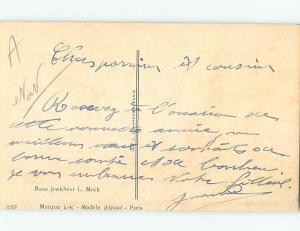 A
Chers parrain et cousin
Recevez à l'occasion de
cette nouvelle année, mes
meilleurs vœux et souhaits de
bonne santé et de bonheur.
je vous embrasse Votre filleul
Rose Jonkheer L. Mock
Marque L-K - Modèle déposé - Paris